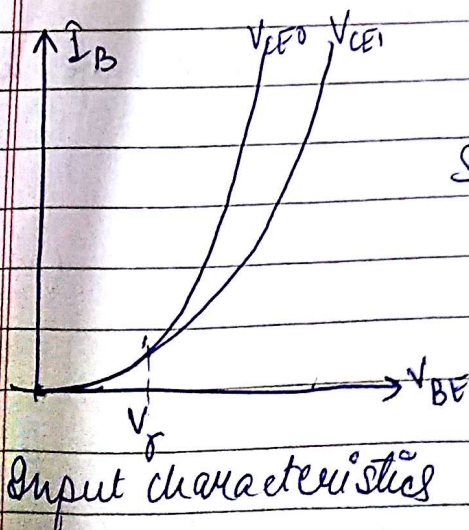 I_B
V_CE0 V_CE1
V_BE
V_γ
Input characteristics